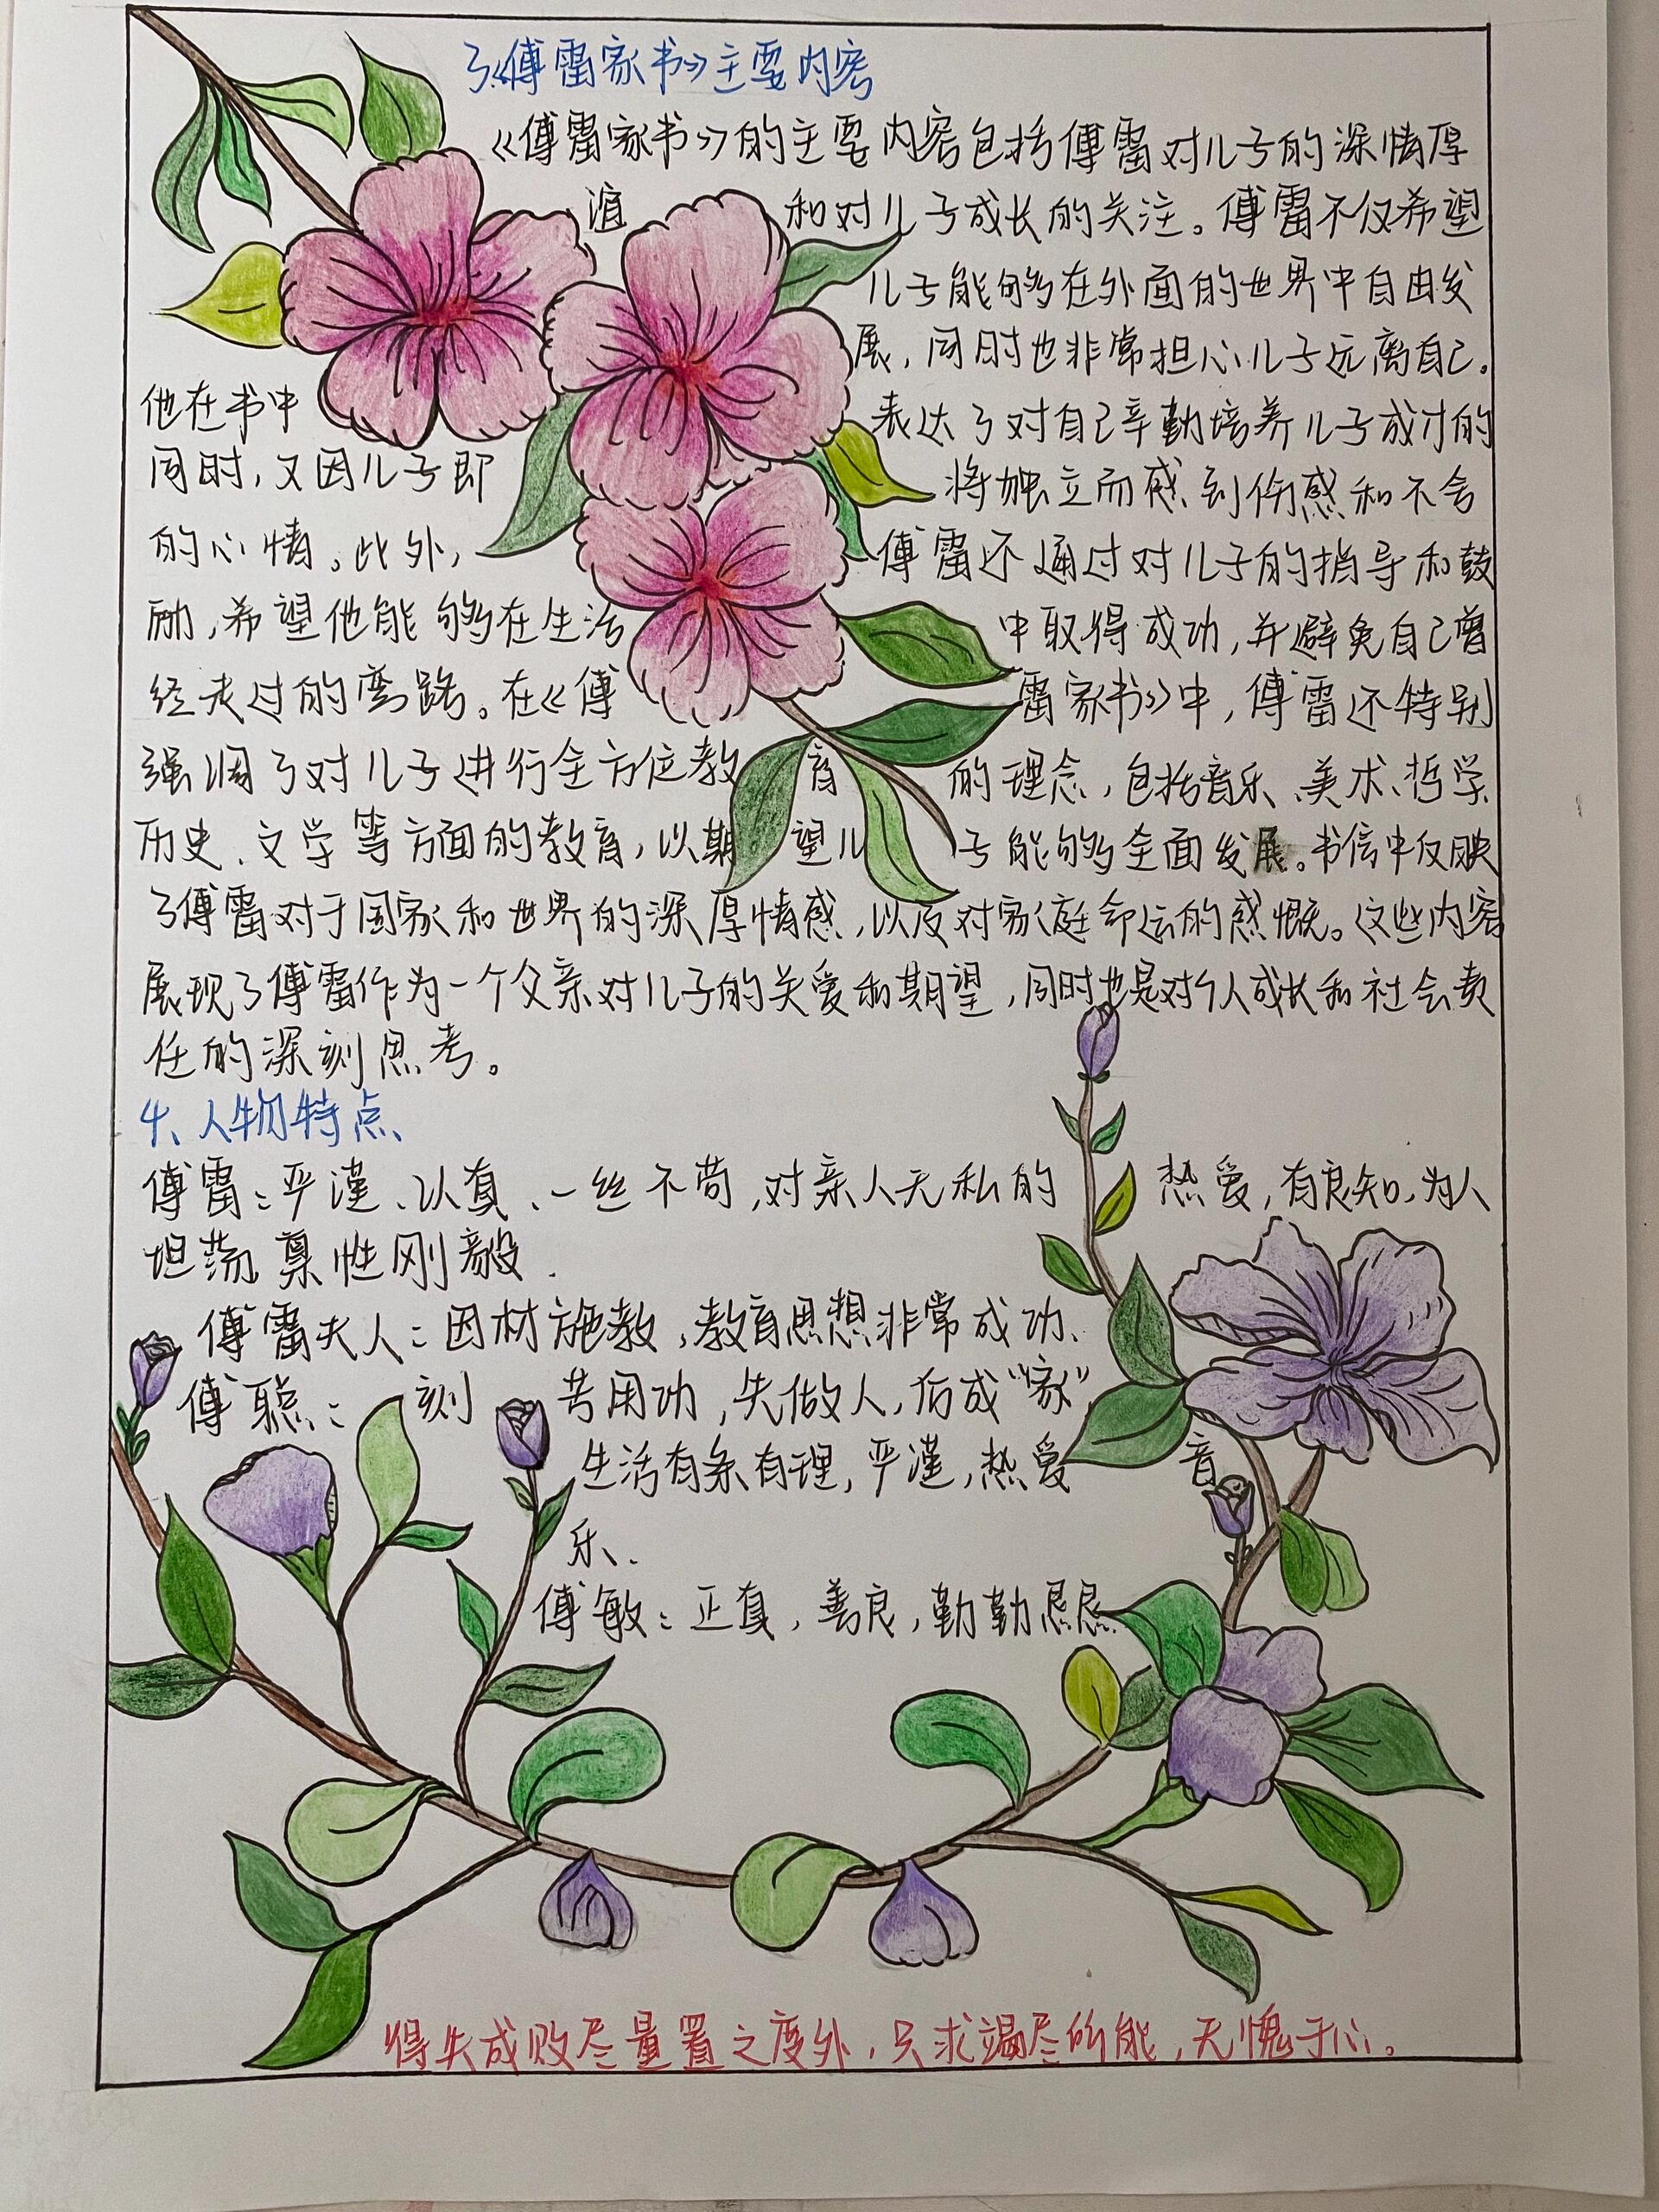 3《傅雷家书》主要内容
《傅雷家书》的主要内容包括傅雷对儿子的深情厚
谊和对儿子成长的关注。傅雷不仅希望
儿子能够在外面的世界中自由发
展,同时也非常担心儿子远离自己。
他在书中表达了对自己辛勤培养儿子成才的
同时,又因儿子即将独立而感到伤感和不舍
的心情。此外,傅雷还通过对儿子的指导和鼓
励,希望他能够在生活中取得成功,并避免自己曾
经走过的弯路。在《傅雷家书》中,傅雷还特别
强调了对儿子进行全方位教育的理念,包括音乐、美术、哲学
历史、文学等方面的教育,以期望儿子能够全面发展。书信中反映
了傅雷对于国家和世界的深厚情感,以及对家庭命运的感慨。这些内容
展现了傅雷作为一个父亲对儿子的关爱和期望,同时也是对个人成长和社会责
任的深刻思考。
4、人物特点
傅雷:严谨、认真、一丝不苟,对亲人无私的热爱,有良知,为人
坦荡禀性刚毅.
傅雷夫人:因材施教,教育思想非常成功、
傅聪:刻苦用功,先做人,后成“家”
生活有条有理,严谨,热爱音
乐、
傅敏:正直,善良,勤勤恳恳
得失成败尽量置之度外,只求竭尽所能,无愧于心。